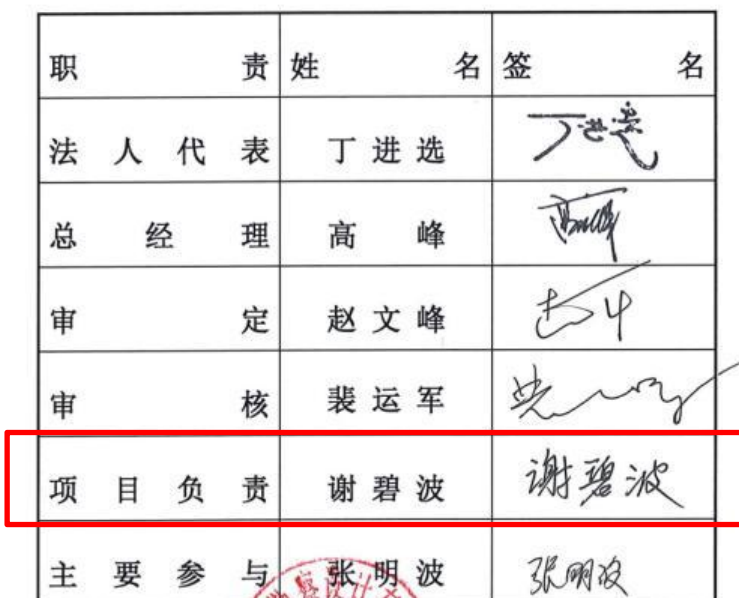 职责 姓名 签名
法人代表 丁进选 丁进选
总经理 高峰
审定 赵文峰
审核 裴运军
项目负责 谢碧波 谢碧波
主要参与 张明波 张明波
察设计